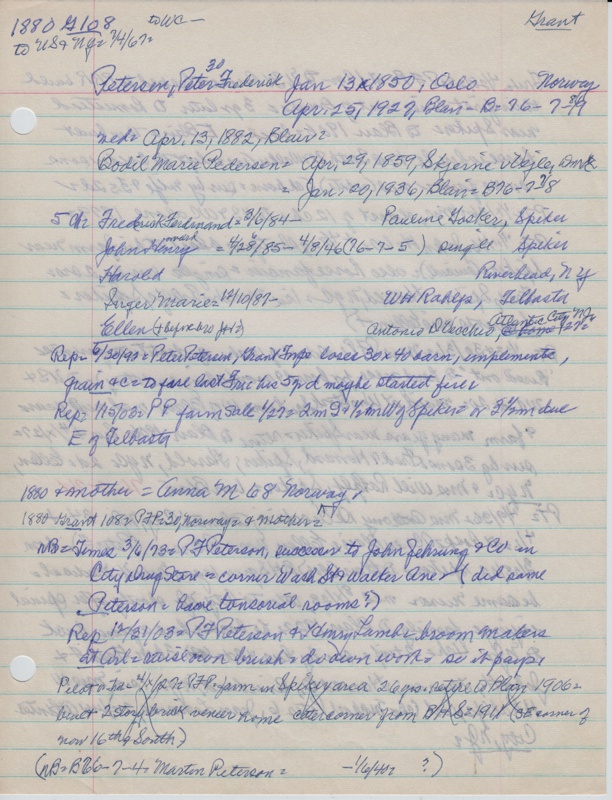 1880 G108 to WC - Grant
to US & Ng = 74/67=
30
Peterson, Peter Frederick Jan 13 x 1850, Oslo Norway
Apr. 25, 1927, Blair = B= 76-7-
med = Apr, 13, 1882, Blair =
Bodil Marie Pedersen = Apr, 29, 1859, Skjerne Vejle, Dmk
= Jan, 20, 1936, Blair = B76-7-8
5 Ch= Frederick Ferdinand = 3/6/84 - Pauline Gosker, Spiker
John Henry = 4/28/85 - 4/8/46 (76-7-5) single Spiker
Harold Riverhead, N Y
Inger Marie = 12/10/87 - Wm Rahlfs, Telbasta
Ellen Antonio Atlantic City, NJ
Rep = 6/30/92 = Peter Peterson, Grant Imps loses 30 x 40 barn, implements,
grain & c = to fire last Fri = his 5 yr d maybe started fire
Rep = 1/15/03 = P P farm sale 1/27 = 2 m S & 1/2 m W of Spiker = or 3 1/2 m due
E of Telbasta
1880 & mother = Anna M 68 Norway,
1880 Grant 108 = P F P = 30, Norway = & mother =
NB = Times 3/6/73 = P F Peterson, successor to John Gehrung & Co in
City Drug Store = corner Wash St & Walker Ave = (did same
Peterson = have tonsorial rooms?)
Rep 12/31/03 = P F Peterson & Henry Lamb = broom makers
at Arl = raise own brush = do own work = so it pays,
Pilot & Tri = 4/ /27 = P F P = farm in Spiker area 26 yrs = retire to Blair 1906 =
built 2 story brick veneer home catercorner from B/H S = 1911 (SE corner of
now 16th & South)
(NB = B76-7-4 = Martin Peterson = -1/6/40 = ?)